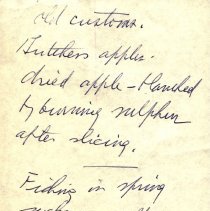 old customs.
Butchers apples.
dried apple - blanched
by burning sulphur
after slicing.
Fishing in spring